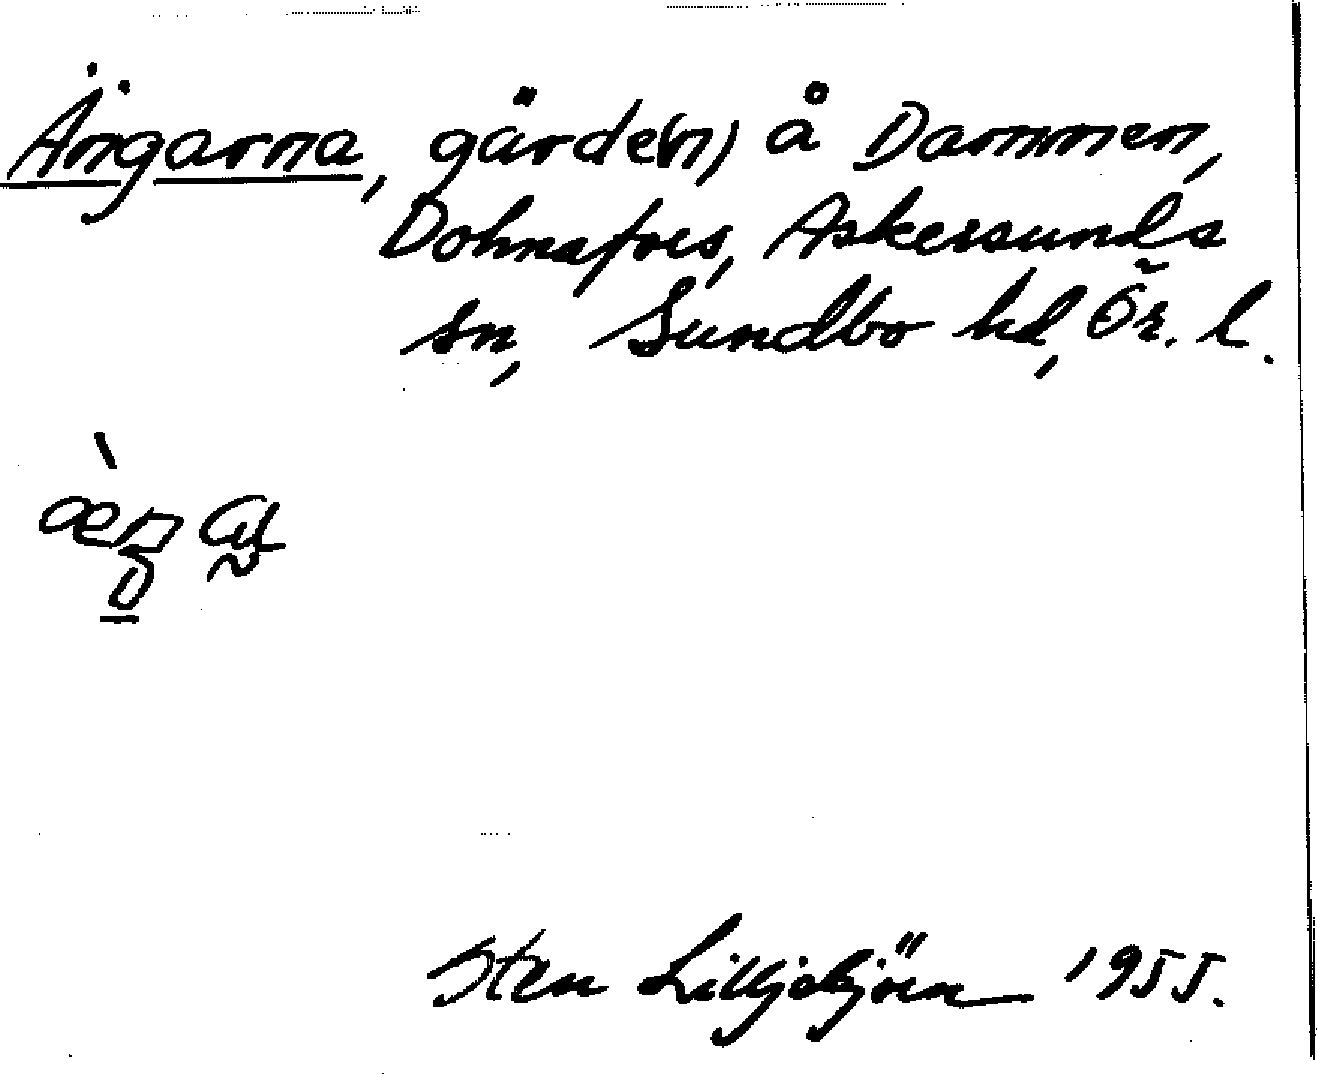 Ängarna, gärde(n) å Dammen,
Dohnafors, Askersunds
sn, Sundbo hd, Ör. l.
Sten Lilljebjörn 1955.